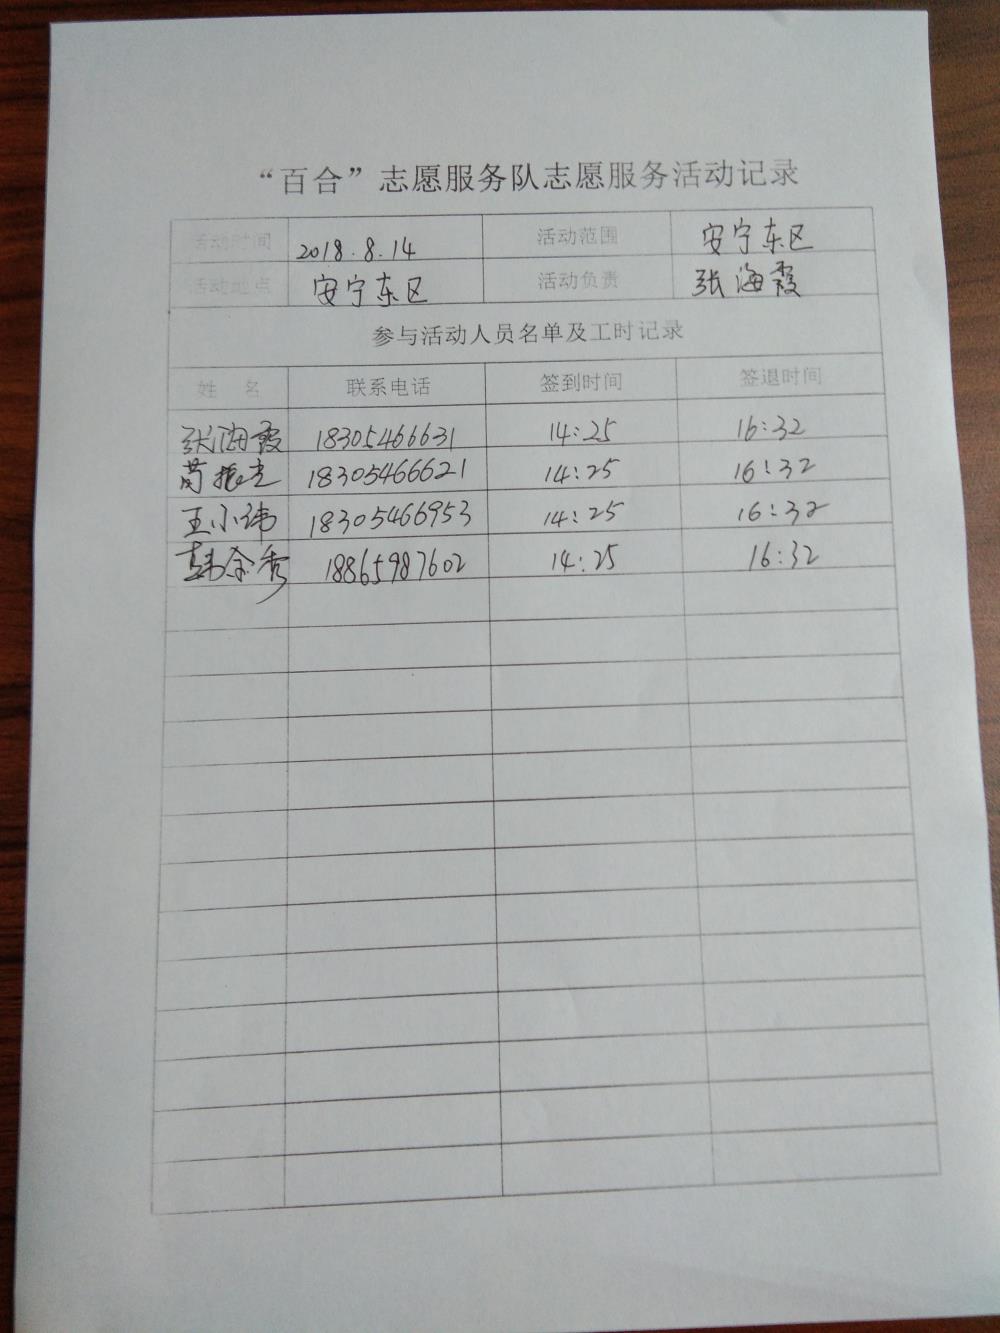 “百合”志愿服务队志愿服务活动记录
活动时间 2018.8.14 活动范围 安宁东区
活动地点 安宁东区 活动负责 张海霞
参与活动人员名单及工时记录
姓 名 联系电话 签到时间 签退时间
张海霞 18305466631 14:25 16:32
18305466621 14:25 16:32
王小伟 18305466953 14:25 16:32
秀 18865987602 14:25 16:32